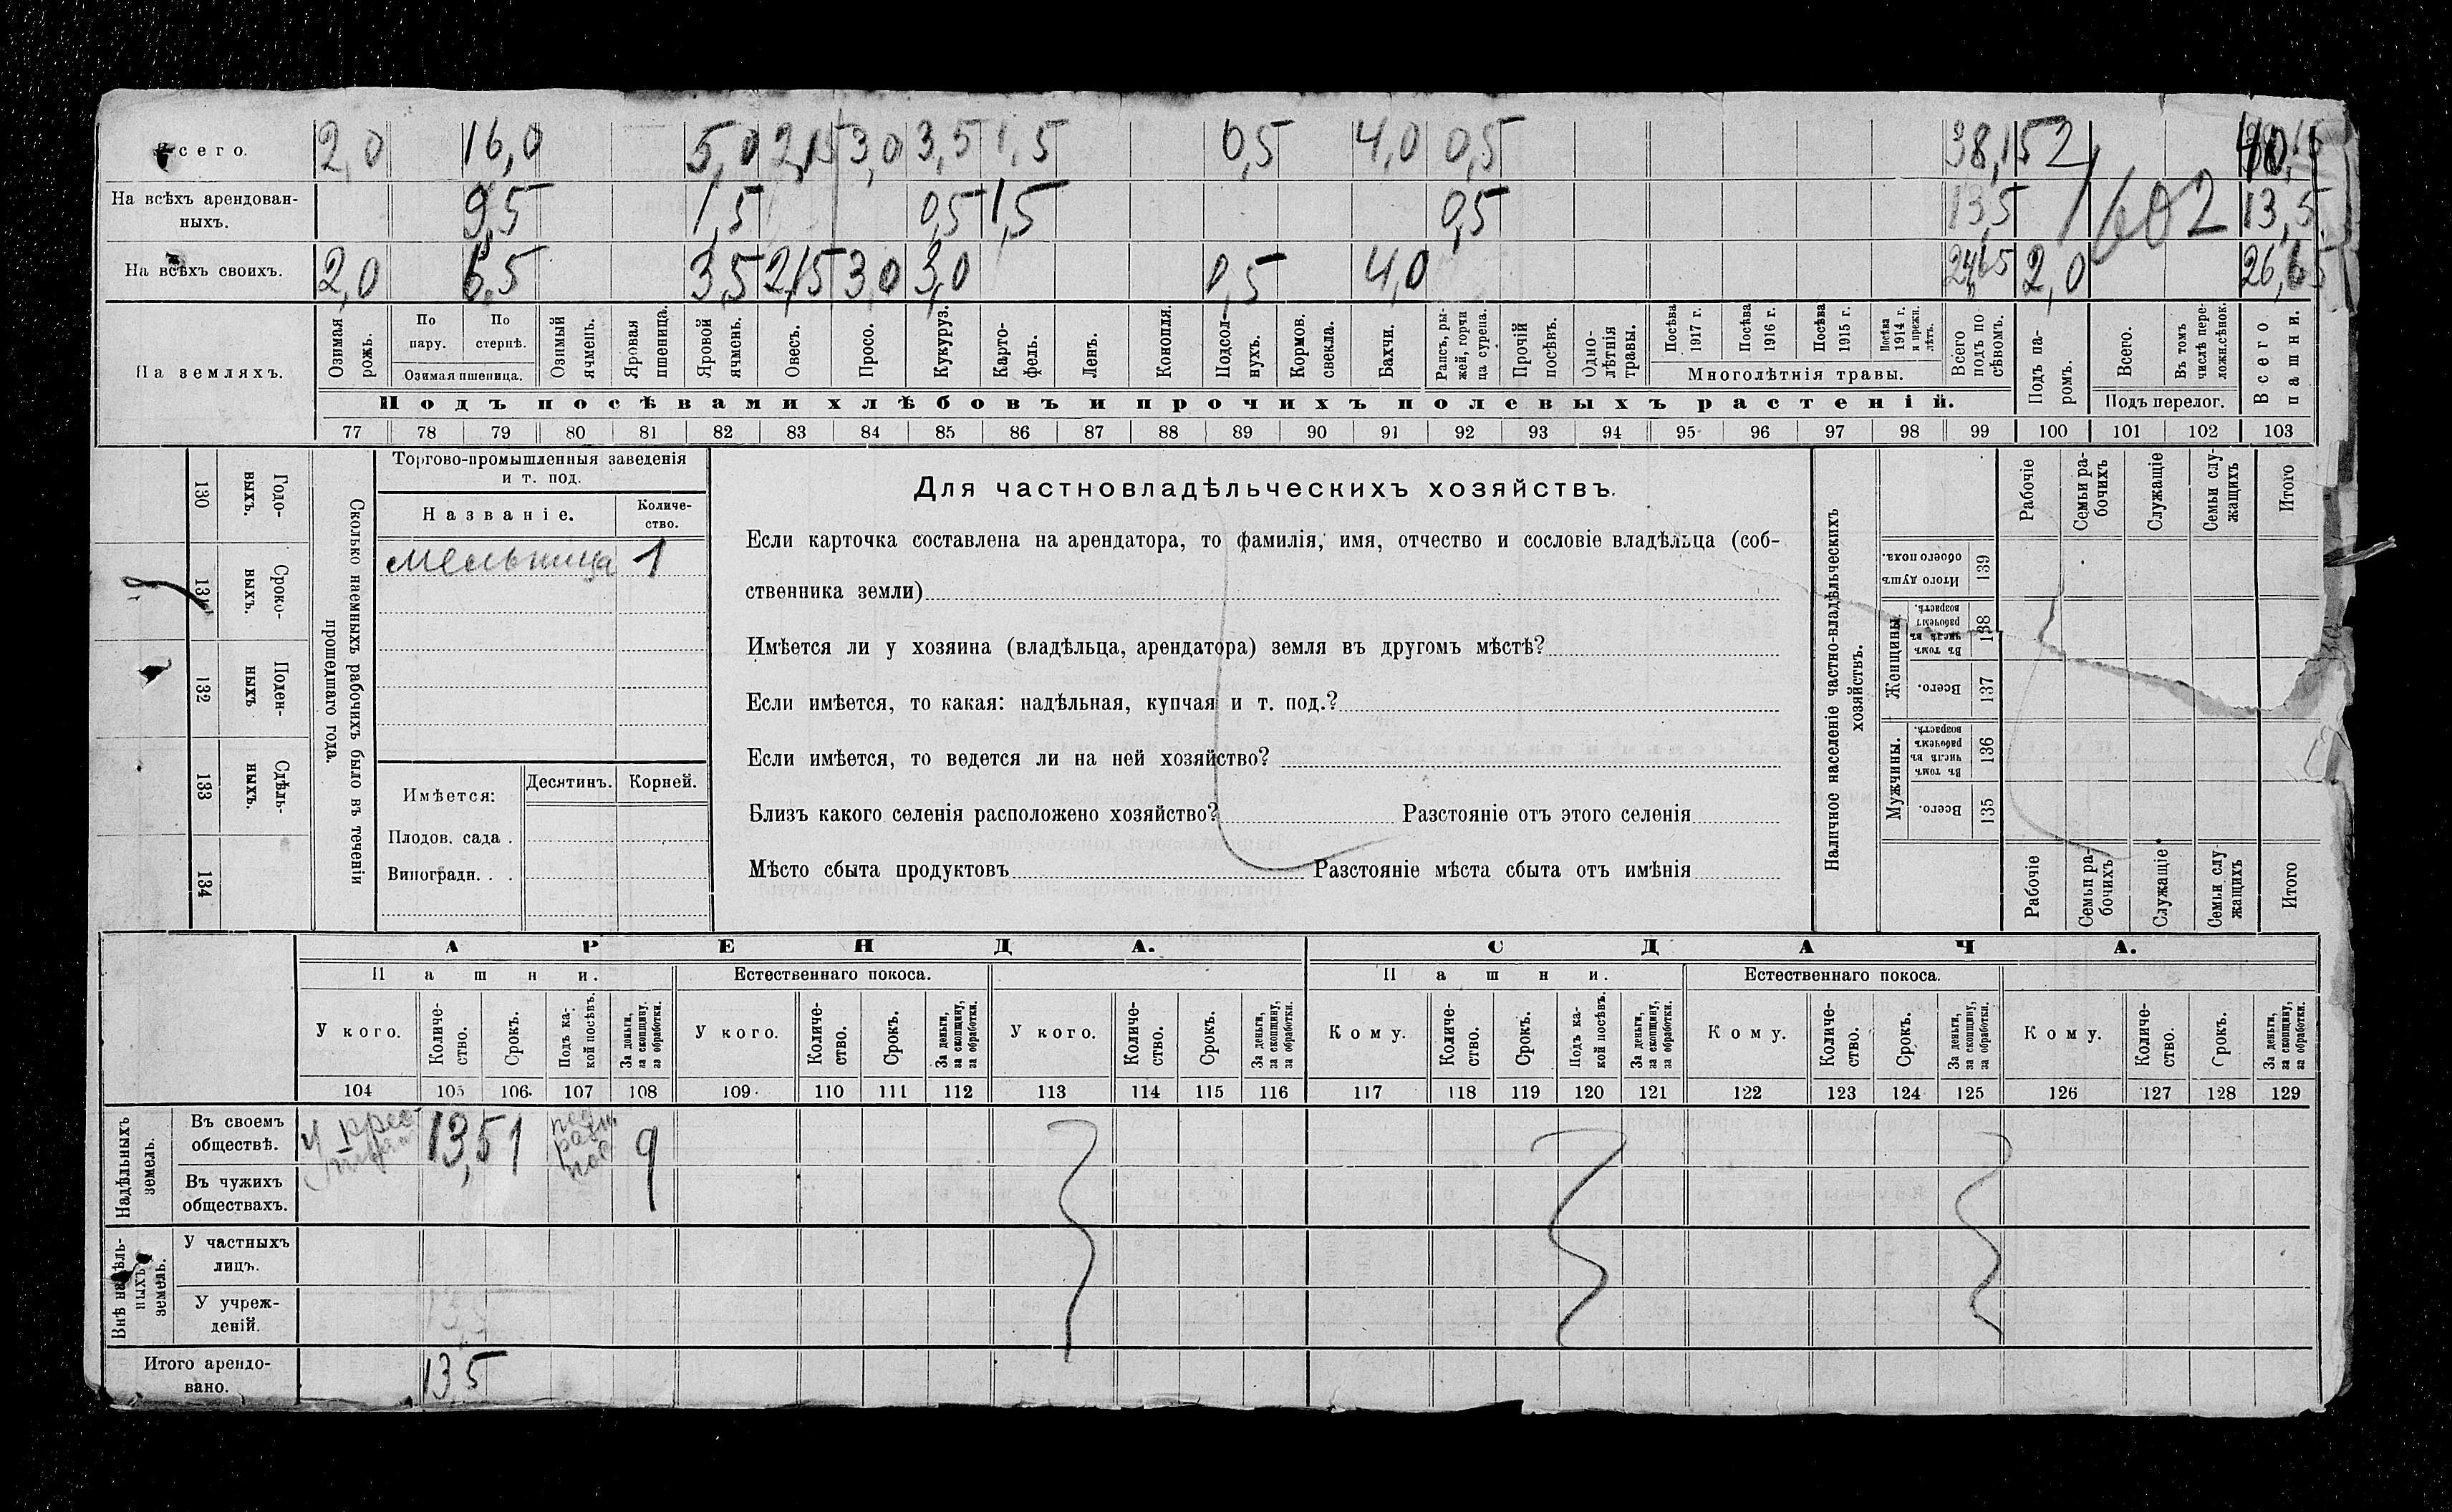 Всего. 2,0 16,0 5,0 2,15 3,0 3,5 1,5 0,5 4,0 0,5 38,15 2
На всѣхъ арендован-
ныхъ. 9,5 1,5 0,5 1,5 0,5 13,5 1602 13,5
На всѣхъ своихъ. 2,0 6,5 3,5 2,15 3,0 3,0 0,5 4,0 24,65 2,0 26,65
На земляхъ.
Озимая рожь.
По пару.
По стернѣ.
Озимая пшеница.
Озимый ячмень.
Яровая пшеница.
Яровой ячмень.
Овесъ.
Просо.
Кукуруз.
Карто-
фель.
Ленъ.
Конопля.
Подсол-
нухъ.
Кормов. свекла.
Бахчи.
Рапсъ, ры-
жей, горчи
ца сурепа.
Прочій посѣвъ.
Одно-
лѣтнія
травы.
Посѣва 1917 г.
Посѣва 1916 г.
Посѣва 1915 г.
Посѣва 1914 г. и прежн. лѣтъ.
Многолѣтнія травы.
Всего подъ по
сѣвомъ.
Подъ па-
ромъ.
Всего.
Въ томъ числѣ пере-
ложн.сѣнок.
Подъ перелог.
Всего пашни.
Подъ посѣвами хлѣбовъ и прочихъ полевыхъ растеній.
77 78 79 80 81 82 83 84 85 86 87 88 89 90 91 92 93 94 95 96 97 98 99 100 101 102 103
130
Годо-
выхъ.
131
Сроко-
выхъ.
132
Поден-
ныхъ
133
Сдѣль-
ныхъ.
134
Сколько наемныхъ рабочихъ было въ теченіи
прошедшаго года.
Торгово-промышленныя заведенія
и т. под.
Названіе.
Количе-
ство.
мельница 1
Имѣется:
Десятинъ.
Корней.
Плодов. сада .
Виноградн. . .
Для частновладѣльческихъ хозяйствъ.
Если карточка составлена на арендатора, то фамилія, имя, отчество и сословіе владѣльца (соб-
ственника земли)
Имѣется ли у хозяина (владѣльца, арендатора) земля въ другомъ мѣстѣ?
Если имѣется, то какая: надѣльная, купчая и т. под.?
Если имѣется, то ведется ли на ней хозяйство?
Близъ какого селенія расположено хозяйство? Разстояніе отъ этого селенія
Мѣсто сбыта продуктовъ Разстояніе мѣста сбыта отъ имѣнія
Наличное населеніе частно-владѣльческихъ
хозяйствъ.
Рабочіе
Семьи ра-
бочихъ
Служащіе
Семьи слу-
жащихъ
Итого
Итого душъ обоего пола.
139
Женщины.
Въ томъ числѣ въ рабочемъ возрастѣ.
138
Всего.
137
Мужчины.
Въ томъ числѣ въ рабочемъ возрастѣ.
136
Всего.
135
Рабочіе
Семьи ра-
бочихъ
Служащіе
Семьи слу
жащихъ
Итого
АРЕНДА. СДАЧА.
Пашни. Естественнаго покоса. Пашни. Естественнаго покоса.
У кого.
Количе-
ство.
Срокъ.
Подъ ка-
кой посѣвъ.
За деньги,
за скопщину,
за обработки.
У кого.
Количе-
ство.
Срокъ.
За деньги,
за скопщину,
за обработки.
У кого.
Количе-
ство.
Срокъ.
За деньги,
за скопщину,
за обработки.
Кому.
Количе-
ство.
Срокъ.
Подъ ка-
кой посѣвъ.
За деньги,
за скопщину,
за обработки.
Кому.
Количе-
ство.
Срокъ.
За деньги,
за скопщину,
за обработки.
Кому.
Количе-
ство.
Срокъ.
За деньги,
за скопщину,
за обработки.
104 105 106 107 108 109 110 111 112 113 114 115 116 117 118 119 120 121 122 123 124 125 126 127 128 129
Надѣльныхъ
земель.
Въ своемъ
обществѣ. 13,5 1
Въ чужихъ
обществахъ.
Внѣ надѣль-
ныхъ
земель.
У частныхъ
лицъ.
У учреж-
деній.
Итого арендо-
вано. 13,5